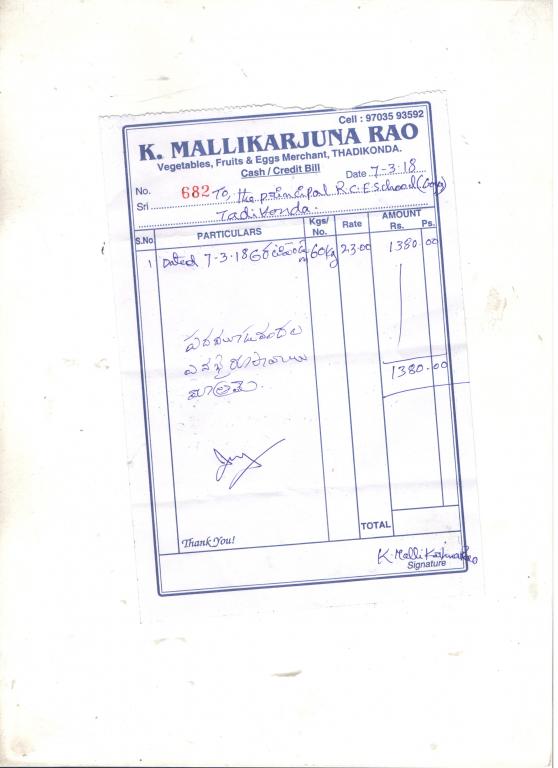 Cell : 97035 93592
K. MALLIKARJUNA RAO
Vegetables, Fruits & Eggs Merchant, THADIKONDA.
Cash / Credit Bill
Date 7-3-18
No. 682 To, the principal R.C.E.School (Boys)
Sri Tadikonda.
S.No. PARTICULARS Kgs/ No. Rate AMOUNT Rs. Ps.
1 Dated 7-3-18 60kg 23.00 1380 00
1380.00
రూపాయలు
మాత్రమే.
TOTAL
Thank You!
K. Malli Karjuna Rao
Signature